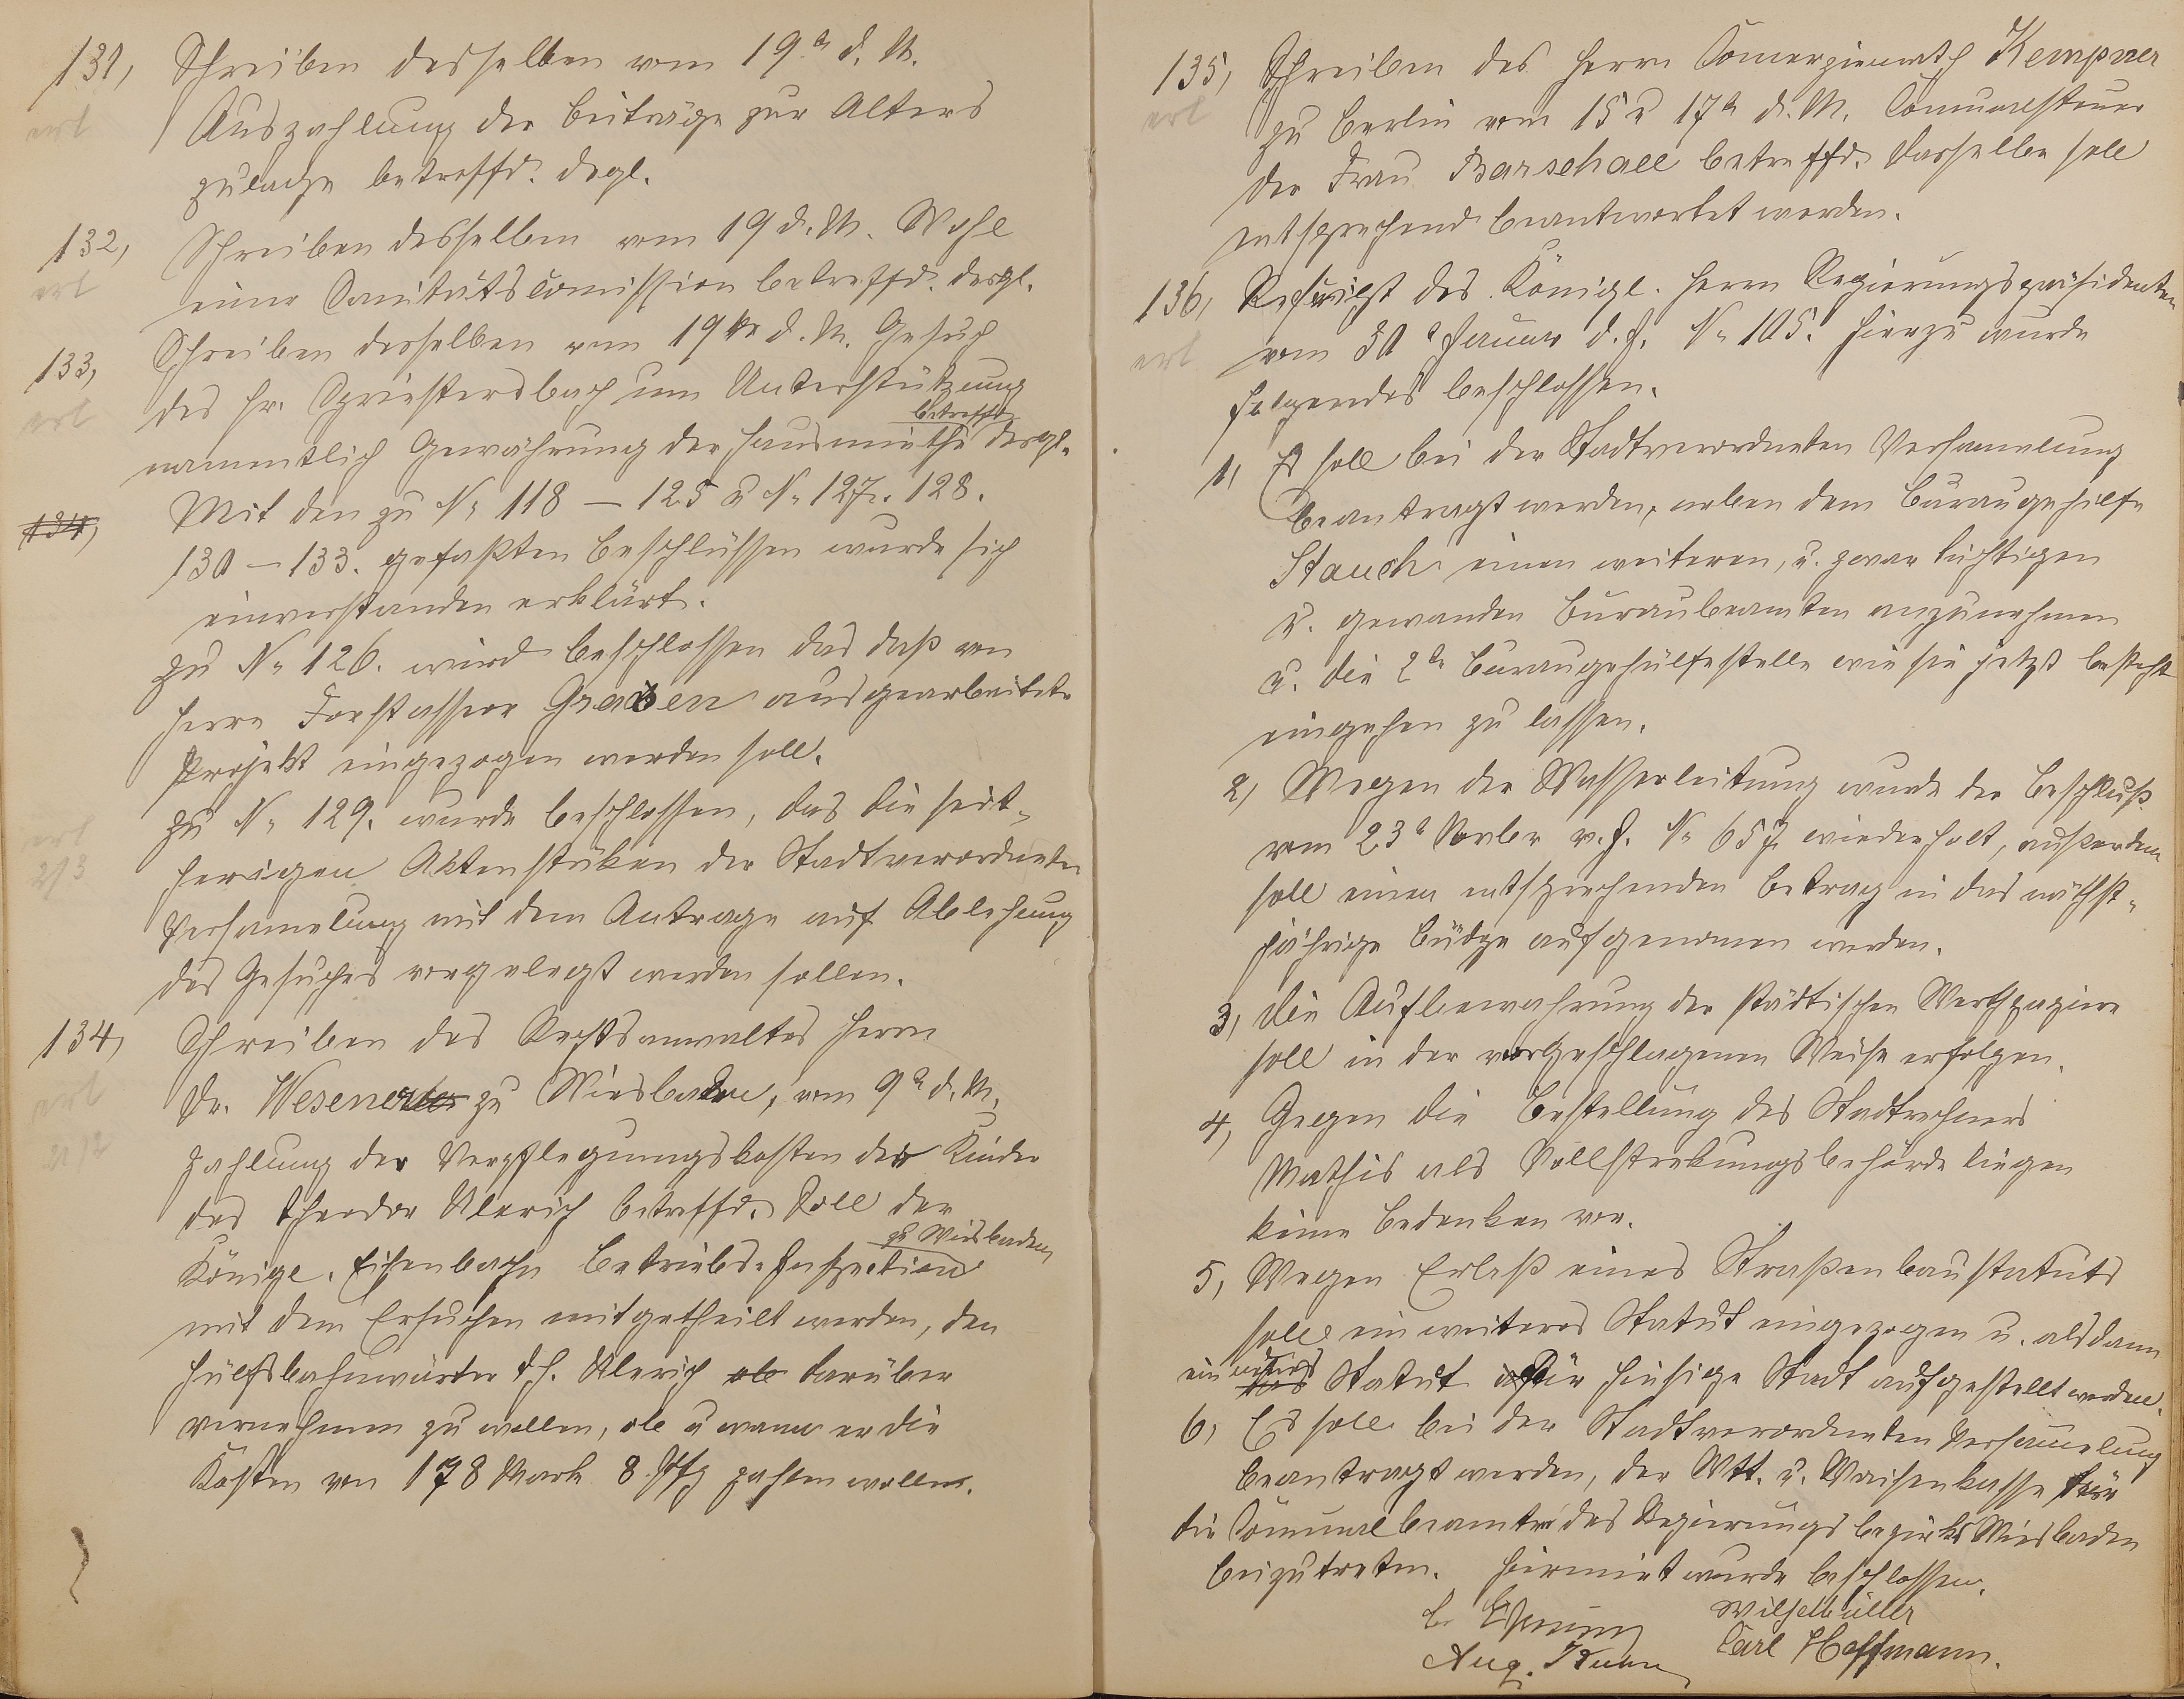 131, Schreiben desselben vom 19t d. M.
erl Auszahlung der Beiträge zur Alters
zulage betreffd. desgl.
132, Schreiben desselben vom 19 d. M. Wahl
erl einer Sanitätscomission betreffd. desgl.
133, Schreiben desselben vom 19ten d. M. Gesuch
erl des Hr. Spriestersbach um Unterstützung
betreffd
namentlich Gewährung der Hausmiethe desgl.
134, Mit den zu No 118 – 125 u No 127. 128.
130 – 133. gefaßten Beschlüssen wurde sich
einverstanden erklärt.
zu No 126. wird beschlossen das daß von
Herrn Forstassesor Graven ausgearbeitete
Projekt eingezogen werden soll.
erl zu No 129. wurde beschlossen, das die seit-
2/3 herigen Aktenstüken der Stadtverordneten
Versamelung mit dem Antrage auf Ablehnung
des Gesuches vorgelegt werden sollen.
134, Schreiben des Rechtsanwaltes Herrn
erl Dr. Wesener zu Wiesbaden, vom 9t d. M.
Zahlung der Verpflegungskosten der Kinder
des Theodor Alerich betreffd. Soll der
zu Wiesbaden
Königl. Eisenbahn Betriebs-Inspection
mit dem Ersuchen mitgetheilt werden, den
Hülfsbahnwärter Th. Alerich ob darüber
vernehmen zu wollen, ob u wann er die
Kosten von 178 Mark 8 Pfg zahlen wollen.
135, Schreiben des Herrn Comerzienrath Kempner
erl zu Berlin vom 15 u 17t d. M. Comunalsteuer
der Frau Barschall betreffd. dasselbe soll
entsprechend beantwortet werden.
136, Rescript des Königl. Herrn Regierungspräsidenten
erl vom 30t Januar d. J. No 105. Hierzu wurde
folgendes beschlossen.
1, Es soll bei der Stadtverordneten Versamelung
beantragt werden, neben dem Büraugehilfe
Stauch einen weiteren, u. zwar tüchtigen
u. gewanden Büraubeamten anzunehmen
u. die 2te Büraugehülfestelle wie sie jetzt besteht
eingehen zu lassen.
2, Wegen der Wasserleitung wurde der Beschluß
vom 23t Novbr v. J. No 657 wiederholt, außerdem
soll einen entsprechenden Betrag in das nächst-
jährige Büdge aufgenomen werden.
3, Die Aufbewahrung der städtischen Werthpapiere
soll in der vorgeschlagenen Weise erfolgen.
4, Gegen die Bestellung des Stadtrechners
Mathis als Vollstrekungsbehörde liegen
keine Bedenken vor.
5, Wegen Erlaß eines Straßenbaustatuts
soll ein weiteres Statut eingezogen u. alsdann
ein Statut für hiesige Stadt aufgestellt werden.
6, Es soll bei der Stadtverordneten Versamelung
beantragt werden, der Wtt. u. Waisenkasse für
die Comunalbeamten des Regierungsbezirks Wiesbaden
beizutreten. Hiermit wurde beschlossen.
Carl Hoffmann.
Aug.